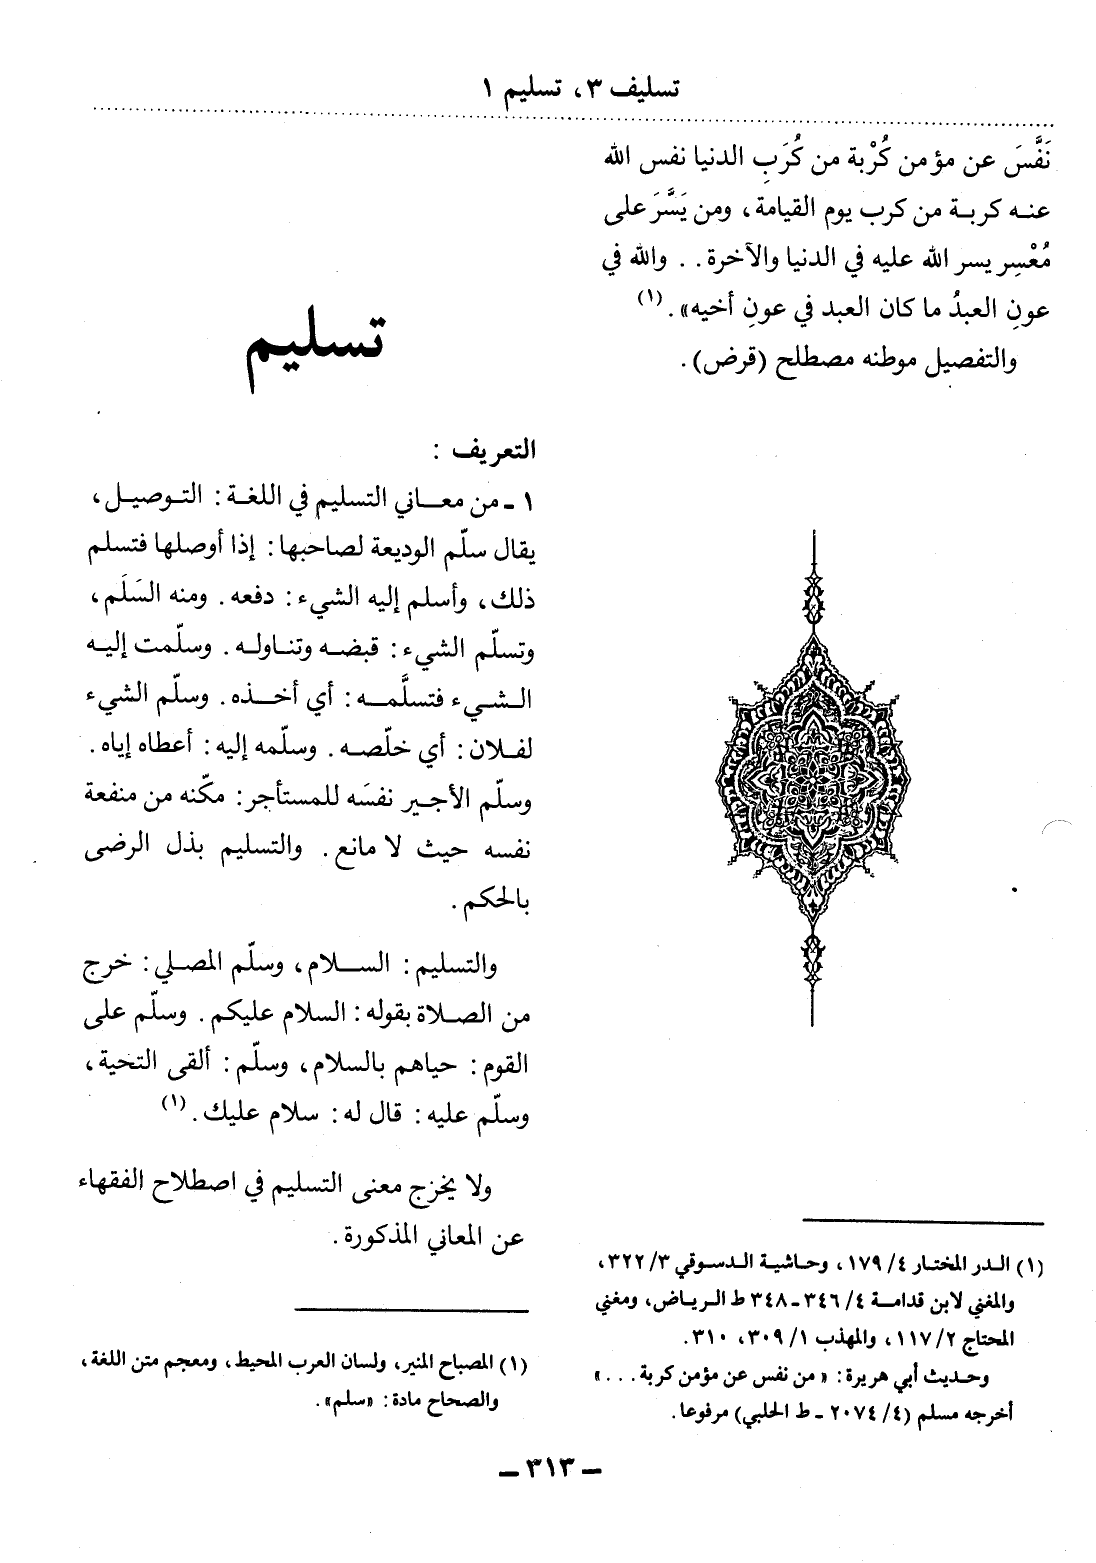 تسليف ٣، تسليم ١
نَفَّسَ عن مؤمن كُرْبة من كُرَبِ الدنيا نفس الله
عنه كربة من كرب يوم القيامة، ومن يَسَّرَ على
مُعْسِر يسر الله عليه في الدنيا والآخرة . . والله في
عونِ العبدُ ما كان العبد في عونِ أخيه» . (١)
والتفصيل موطنه مصطلح (قرض) .
(١) الدر المختار ٤/ ١٧٩، وحاشية الدسوقي ٣/ ٣٢٢،
والمغني لابن قدامة ٤/ ٣٤٦ ـ ٣٤٨ ط الرياض، ومغني
المحتاج ٢/ ١١٧، والمهذب ١/ ٣٠٩، ٣١٠.
وحديث أبي هريرة: « من نفس عن مؤمن كربة . . . »
أخرجه مسلم (٤/ ٢٠٧٤ ـ ط الحلبي) مرفوعا.
تسليم
التعريف :
١ ـ من معاني التسليم في اللغة : التوصيل،
يقال سلّم الوديعة لصاحبها: إذا أوصلها فتسلم
ذلك، وأسلم إليه الشيء : دفعه . ومنه السَلَم،
وتسلّم الشيء : قبضه وتناوله . وسلّمت إليه
الشيء فتسلَّمه : أي أخذه . وسلّم الشيء
لفلان : أي خلّصه . وسلّمه إليه : أعطاه إياه .
وسلّم الأجير نفسَه للمستأجر : مكّنه من منفعة
نفسه حيث لا مانع . والتسليم بذل الرضى
بالحكم .
والتسليم : السلام، وسلّم المصلي : خرج
من الصلاة بقوله : السلام عليكم . وسلّم على
القوم : حياهم بالسلام، وسلّم : ألقى التحية،
وسلّم عليه : قال له : سلام عليك . (١)
ولا يخرج معنى التسليم في اصطلاح الفقهاء
عن المعاني المذكورة .
(١) المصباح المنير، ولسان العرب المحيط، ومعجم متن اللغة،
والصحاح مادة : «سلم» .
ـ ٣١٣ ـ